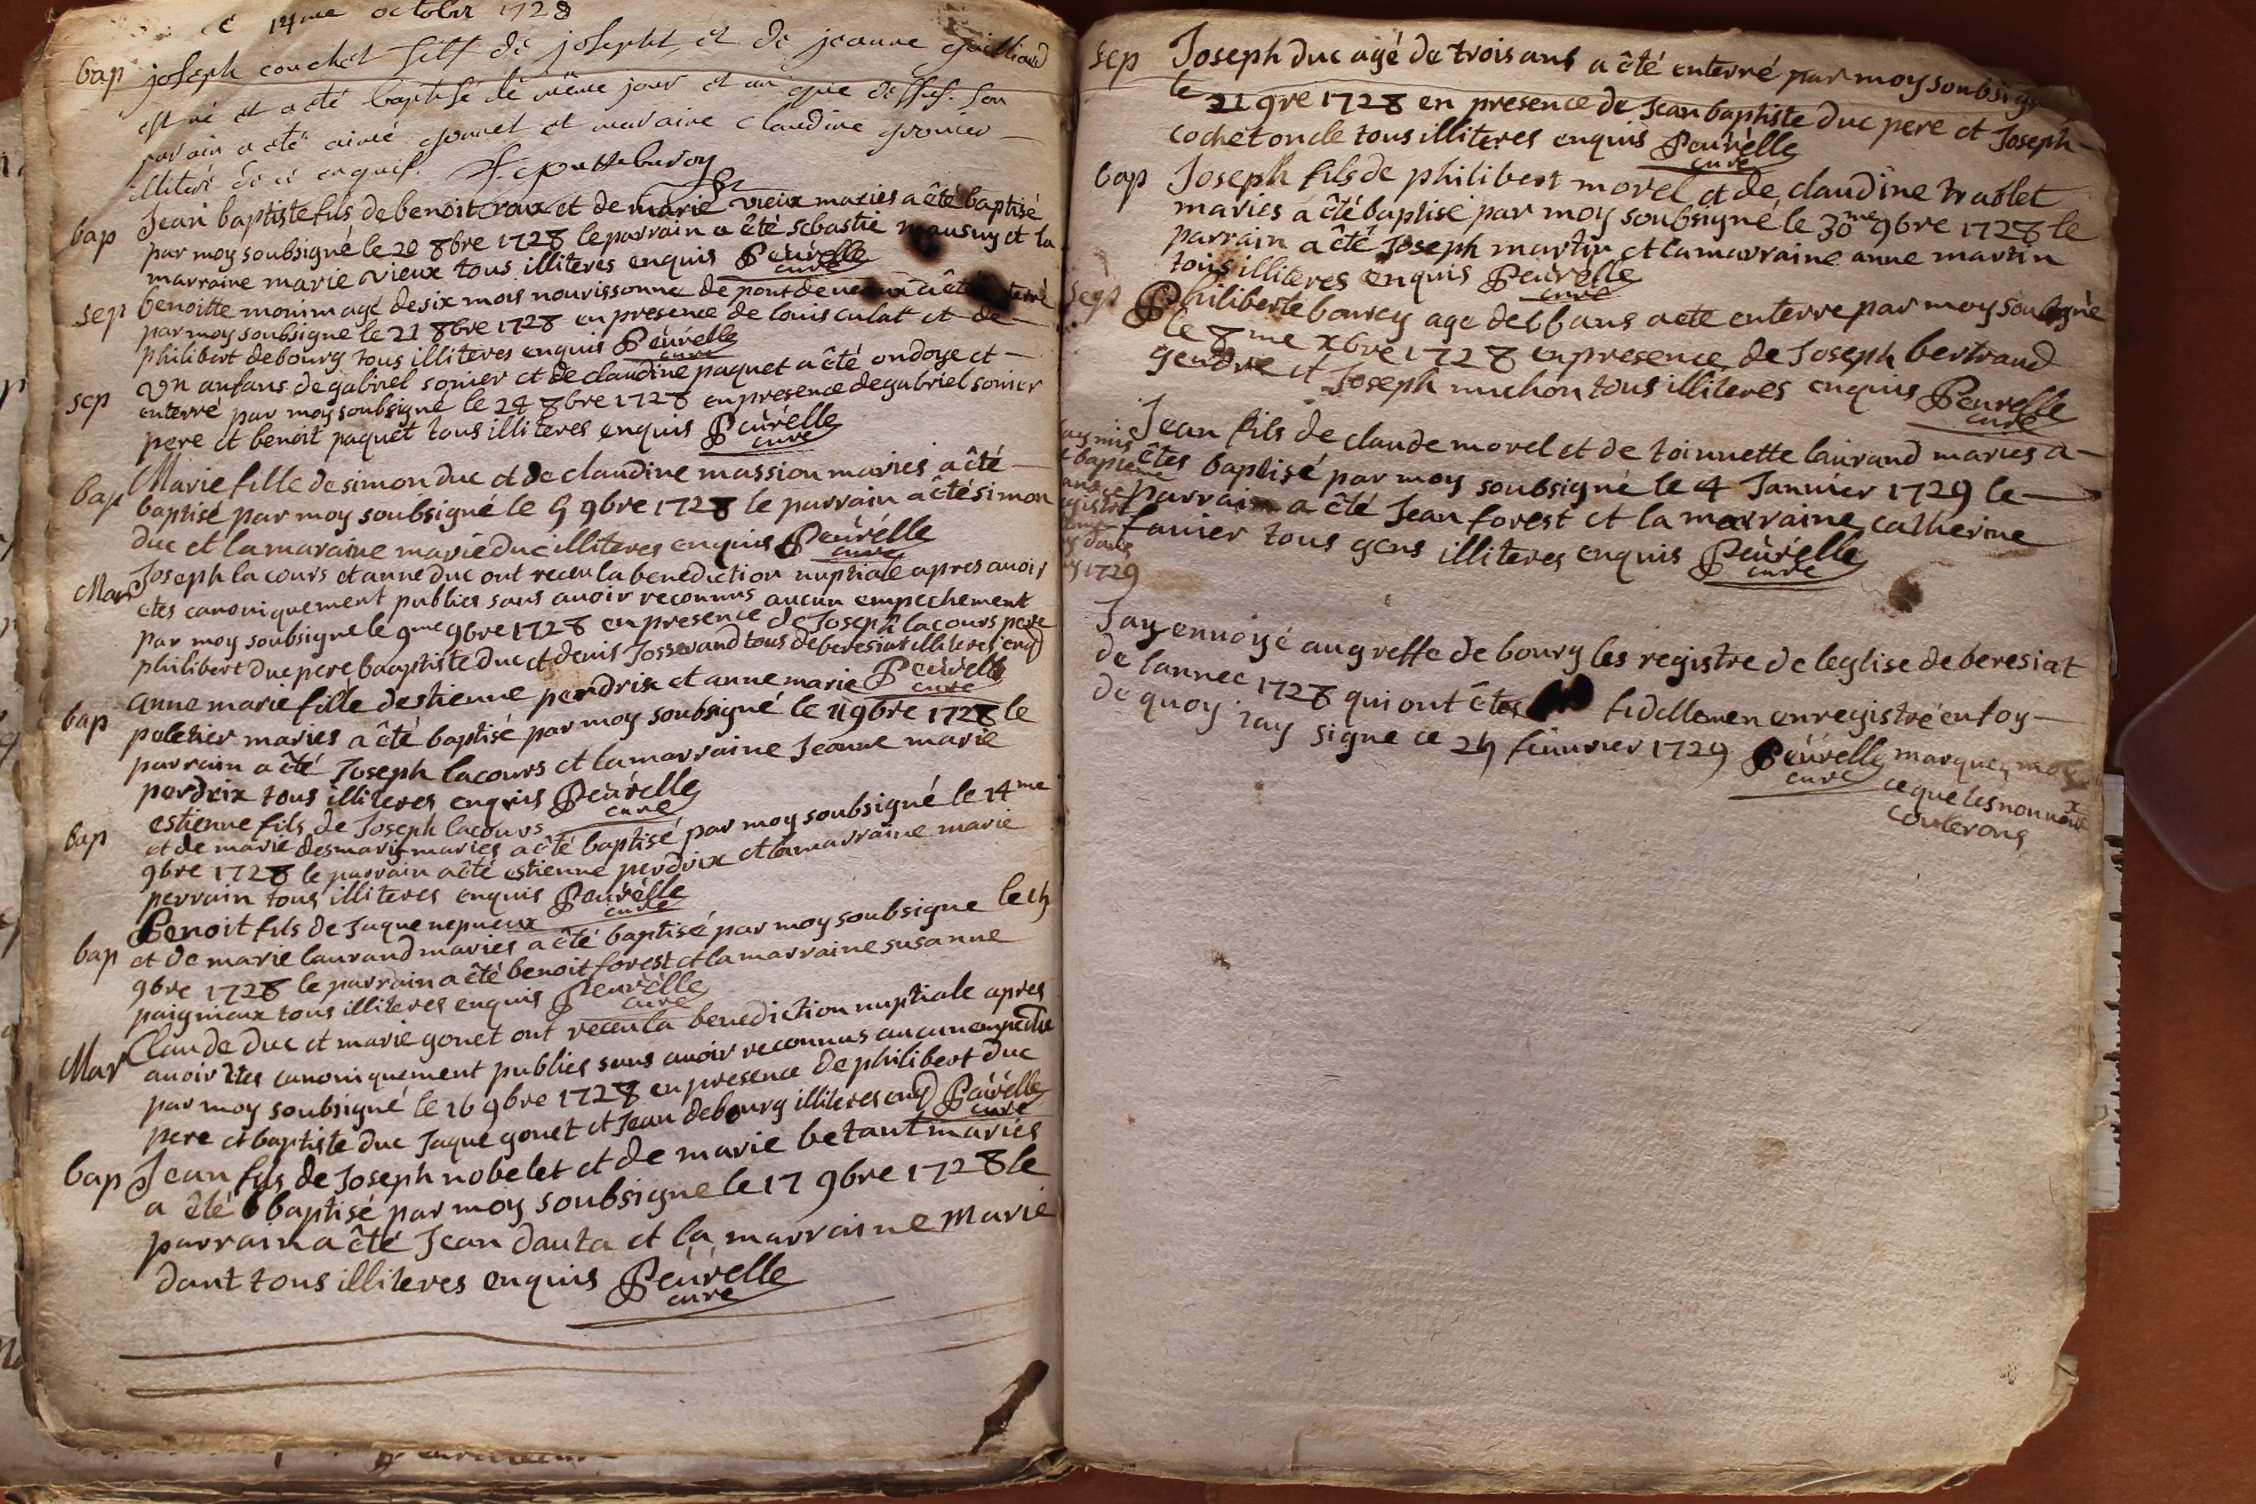 ce 14me octobre 1728
bap joseph couchet fils de joseph et de jeanne
est né et a eté baptisé le même jour et an que dessus. son
parain a eté aimé gonnet et maraine claudine
illiteré de ce enquis.
bap Jean baptiste fils de benoit roux et de marie vieux maries a êté baptisé
par moy soubsigné le 20 8bre 1728 le parrain a êté sebastie mausuy et la
marraine marie vieux tous illiteres enquis Peurelle
curé
sep benoitte monim agé de six mois nourissonne de pont de a êté
par moy soubsigne le 21 8bre 1728 en presence de louis culat et de
philibert debourg tous illiteres enquis Peurelle
curé
sep un anfans de gabriel sonier et de claudine paquet a êté ondoye et
enterré par moy soubsigné le 24 8bre 1728 en presence de gabriel sonier
pere et benoit paquet tous illiteres enquis Peurelle
curé
bap Marie fille de simon duc et de claudine massion maries a êté
baptisé par moy soubsigné le 5 9bre 1728 le parrain a êté simon
duc et la maraine marie duc illiteres enquis Peurelle
curé
Mar Joseph lacours et anne duc ont receu la benediction nuptiale apres avoir
etes canoniquement publies sans avoir reconnus aucun empechement
par moy soubsigne le 9me 9bre 1728 en presence de Joseph lacours pere
philibert duc pere baaptiste duc et denis Josserand tous de beresiat illiteres enq
anne marie fille destienne perdrix et anne marie Peurelle
curé
bap peletier maries a êté baptisé par moy soubsigné le 11 9bre 1728 le
parrain a êté Joseph lacours et la marraine Jeanne marie
perdrix tous illiteres enquis Peurelle
curé
estienne fils de Joseph lacours
bap et de marie desmaris maries a êté baptisé par moy soubsigné le 14me
9bre 1728 le parrain a êté estienne perdrix et la marraine marie
perrain tous illiteres enquis Peurelle
curé
Benoit fils de Jaque nepueux
bap et de marie laurand maries a êté baptisé par moy soubsigne le 15
9bre 1728 le parrain a êté benoit forest et la marraine susanne
paigniaux tous illiteres enquis Peurelle
curé
Mar Claude duc et marie gonet ont receu la benediction nuptiale apres
avoir êtes canoniquement publies sans avoir reconnus aucun
par moy soubsigné le 16 9bre 1728 en presence de philibert duc
pere et baptiste duc Jaque gonet et Jean debourg illiteres enq Peurelle
curé
bap Jean fils de Joseph nobelet et de marie betant maries
a êté baptisé par moy soubsigne le 17 9bre 1728 le
parrain a êté Jean dauta et la marraine Marie
dant tous illiteres enquis Peurelle
curé
sep Joseph duc agé de trois ans a êté enterré par moy
le 21 9re 1728 en presence de Jean baptiste duc pere et Joseph
cochet oncle tous illiteres enquis Peurelle
curé
bap Joseph fils de philibert morel et de claudine trablet
maries a êté baptise par moy soubsigné le 30me 9bre 1728 le
parrain a êté Joseph martin et la marraine anne martin
tous illiteres enquis Peurelle
curé
sep Philiberte bourcy age de 66 ans a ete enterre par moy soubsigné
le 8me xbre 1728 en presence de Joseph bertrand
gendre et Joseph michon tous illiteres enquis Peurelle
curé
Jean fils de claude morel et de toinnette laurand maries a
êtes baptisé par moy soubsigné le 4 Janvier 1729 le
parrain a êté Jean forest et la marraine catherine
fanier tous gens illiteres enquis Peurelle
curé
mis
bapteme
dans
1729
Jay envoyé au greffe de bourg les registre de leglise de beresiat
de lannee 1728 qui ont êtes fidellemen enregistré en foy
de quoy jay signe ce 25 feuvrier 1729 Peurelle
curé
marquez moy
ce que les nouueaux
couterons